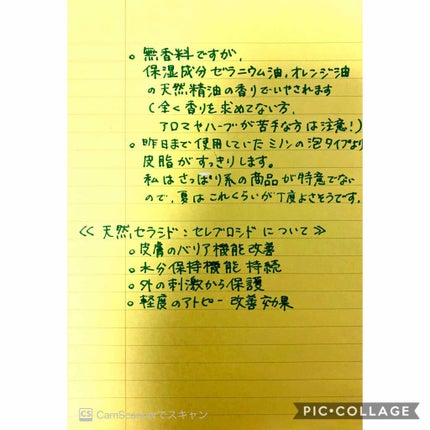 ○ 無香料ですが、
保湿成分ゼラニウム油、オレンジ油
の天然精油の香りでいやされます
(全く香りを求めてない方、
アロマやハーブが苦手な方は注意!)
○ 昨日まで使用していたミノンの泡タイプより
皮脂がすっきりします。
私はさっぱり系の商品が得意でない
ので、夏はこれくらいが丁度よさそうです。
≪ 天然セラミド:セレブロシド について ≫
○ 皮膚のバリア機能改善
○ 水分保持機能 持続
○ 外の刺激から保護
○ 軽度のアトピー 改善効果
CS CamScannerでスキャン
PIC•COLLAGE